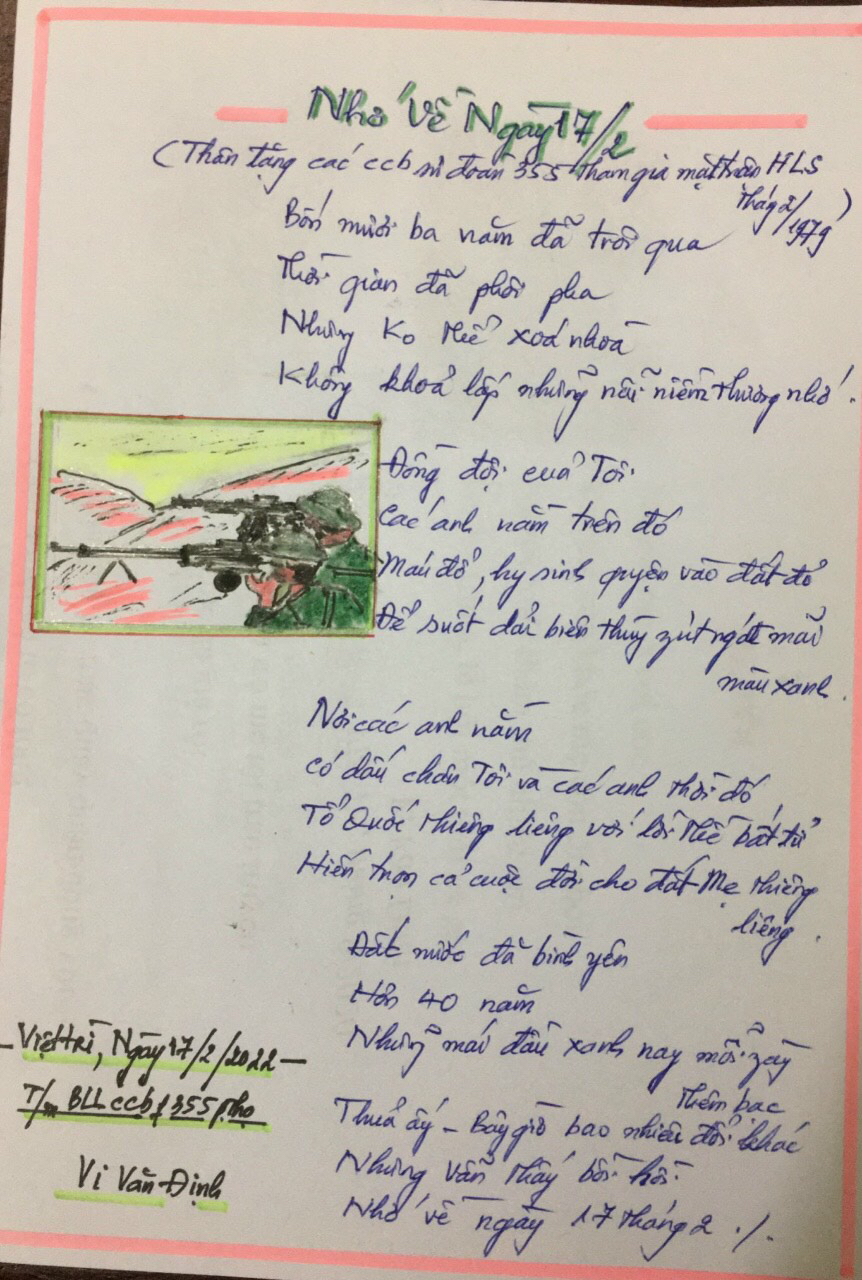 Nhớ Về Ngày 17/2
(Thân tặng các ccb sư đoàn 355 tham gia mặt trận HLS
tháng 2/1979)
Bốn mươi ba năm đã trôi qua
Thời gian đã phôi pha
Nhưng Ko thể xoá nhoà
Không khoả lấp những nỗi niềm thương nhớ.
Đồng đội của Tôi
Các anh nằm trên đó
Máu đổ, hy sinh quyện vào đất đỏ
Để suốt dải biên thùy zút ngát mãi
màu xanh.
Nơi các anh nằm
Có dấu chân Tôi và các anh thời đó
Tổ Quốc thiêng liêng với lời thề bất tử
Hiến trọn cả cuộc đời cho đất Mẹ thiêng
liêng.
Đất nước đã bình yên
Hơn 40 năm
Những mái đầu xanh nay mỗi zây
thêm bạc
Thuở ấy - Bây giờ bao nhiêu đổi khác
Nhưng vẫn thấy bồi hồi
Nhớ về ngày 17 tháng 2 ./.
- Việt trì, Ngày 17/2/2022 -
T/m BLL ccb f 355 P.thọ
Vi Văn Định